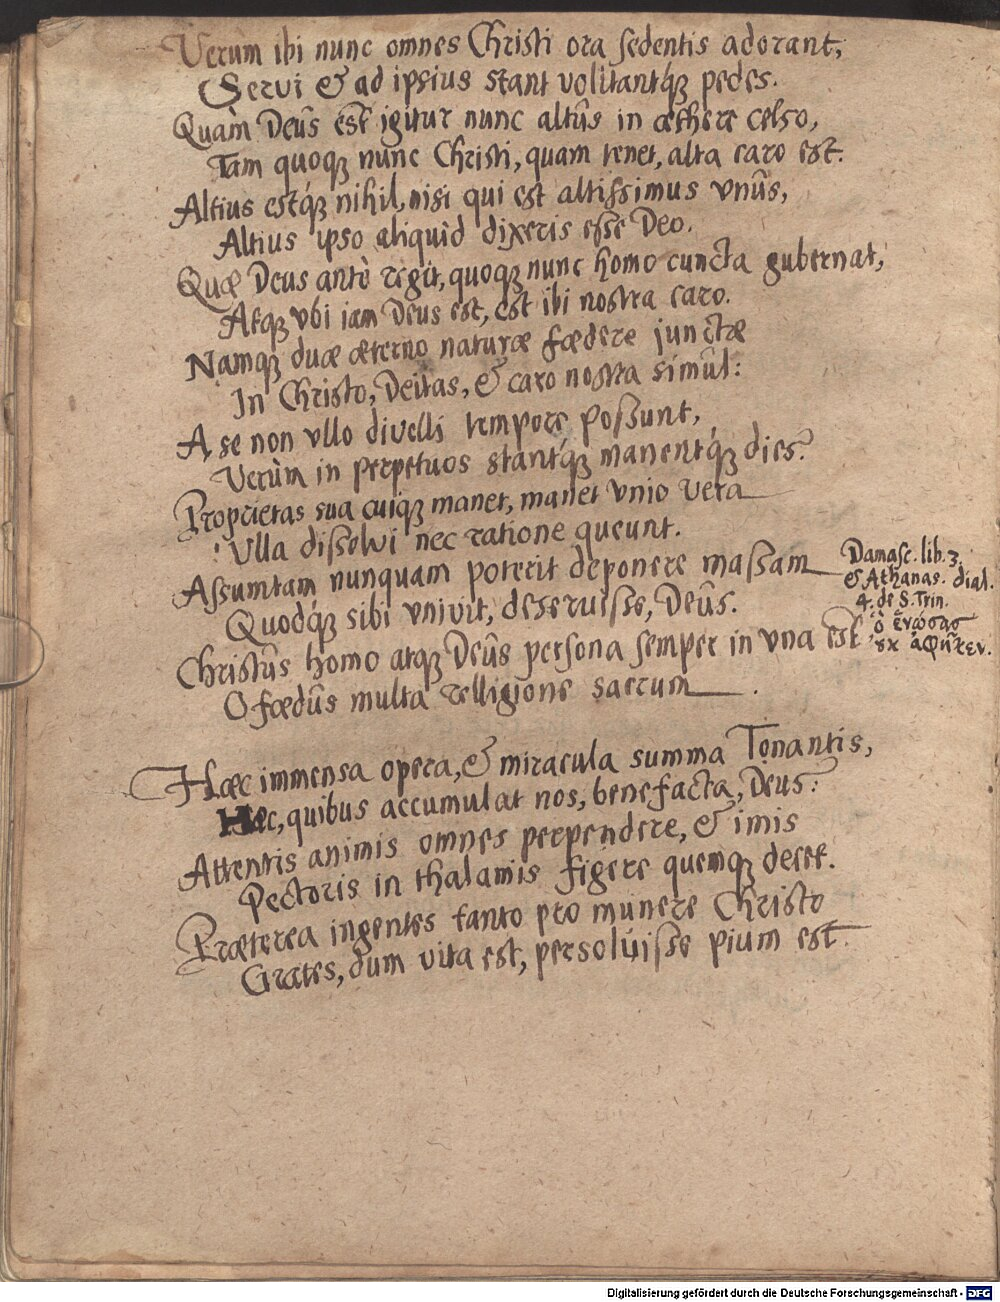 Verùm ibi nunc omnes Christi ora sedentis adorant,
Servi & ad ipsius stant volitantq́ꝫ pedes.
Quàm Deûs est igitur nunc altûs in æthere celso,
Tam quoqꝫ nunc Christi, quam tenet, alta caro est.
Altius estq́ꝫ nihil, nisi qui est altissimus vnûs,
Altius ipso aliquid dixeris esse Deo.
Quæ Deus antè regit, quoqꝫ nunc homo cuncta gubernat,
Atqꝫ vbi iam Deus est, est ibi nostra caro.
Namqꝫ duæ æterno naturæ fœdere junctæ
In Christo, Deitas, & caro nostra simûl:
A se non vllo divelli tempore possunt,
Verùm in perpetuos stantq́ꝫ manentq́ꝫ dies.
Proprietas sua cuiqꝫ manet, manet vnio vera
Vlla dissolvi nec ratione queunt.
Assumtam nunquam poterit deponere massam
Quodq́ꝫ sibi vnivit, deseruisse, Deûs.
Christûs homo atqꝫ Deûs persona semper in vna est
O fœdûs multa relligione sacrum.
Damasc. lib. 3.
& Athanas. dial.
4. de S. Trin.
ὃ ἕνωσας
ȣκ ἀφῆκεν.
Hæc immensa opera, & miracula summa Tonantis,
Hæc, quibus accumulat nos, benefacta, Deus:
Attentis animis omnes perpendere, & imis
Pectoris in thalamis figere quemqꝫ decet.
Præterea ingentes tanto pro munere Christo
Grates, dum vita est, persolúisse pium est.
Digitalisierung gefördert durch die Deutsche Forschungsgemeinschaft - DFG